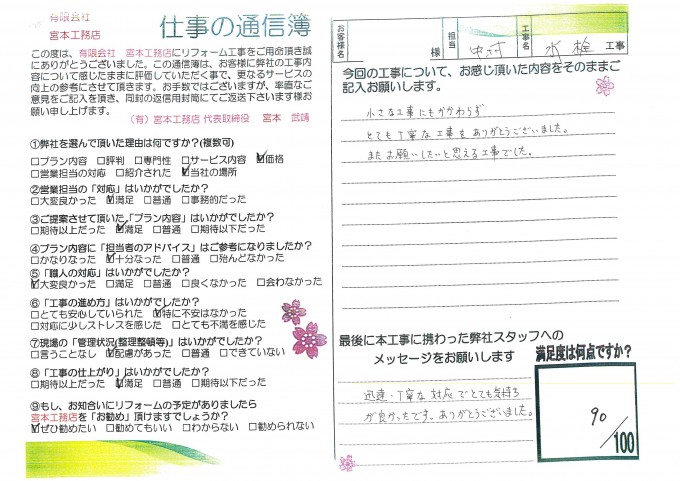 有限会社
宮本工務店
仕事の通信簿
この度は、有限会社 宮本工務店にリフォーム工事をご用命頂き誠
にありがとうございました。この通信簿は、お客様に弊社の工事内
容について感じたままに評価していただく事で、更なるサービスの
向上の参考にさせて頂きます。お手数ではございますが、率直なご
意見をご記入を頂き、同封の返信用封筒にてご返送下さいます様お
願い申し上げます。
(有)宮本工務店 代表取締役 宮本 武靖
①弊社を選んで頂いた理由は何ですか?(複数可)
□プラン内容 □評判 □専門性 □サービス内容 ☑価格
□営業担当の対応 □紹介された ☑当社の場所
②営業担当の「対応」はいかがでしたか?
□大変良かった ☑満足 □普通 □事務的だった
③ご提案させて頂いた「プラン内容」はいかがでしたか?
□期待以上だった ☑満足 □普通 □期待以下だった
④プラン内容に「担当者のアドバイス」はご参考になりましたか?
□かなりなった ☑十分なった □普通 □殆んどなかった
⑤「職人の対応」はいかがでしたか?
☑大変良かった □満足 □普通 □良くなかった □会わなかった
⑥「工事の進め方」はいかがでしたか?
□とても安心していられた ☑特に不安はなかった
□対応に少しストレスを感じた □とても不満を感じた
⑦現場の「管理状況(整理整頓等)」はいかがでしたか?
□言うことなし ☑配慮があった □普通 □できていない
⑧「工事の仕上がり」はいかがでしたか?
□期待以上だった ☑満足 □普通 □期待以下だった
⑨もし、お知合いにリフォームの予定がありましたら
宮本工務店を「お勧め」頂けますでしょうか?
☑ぜひ勧めたい □勧めてもいい □わからない □勧められない
お客様名 様 担当 中村 工事名 水栓 工事
今回の工事について、お感じ頂いた内容をそのままご
記入お願いします。
小さな工事にもかかわらず
とても丁寧な工事をありがとうございました。
またお願いしたいと思える工事でした。
最後に本工事に携わった弊社スタッフへの
メッセージをお願いします
迅速・丁寧な対応でとても気持ち
が良かったです。ありがとうございました。
満足度は何点ですか?
90/100